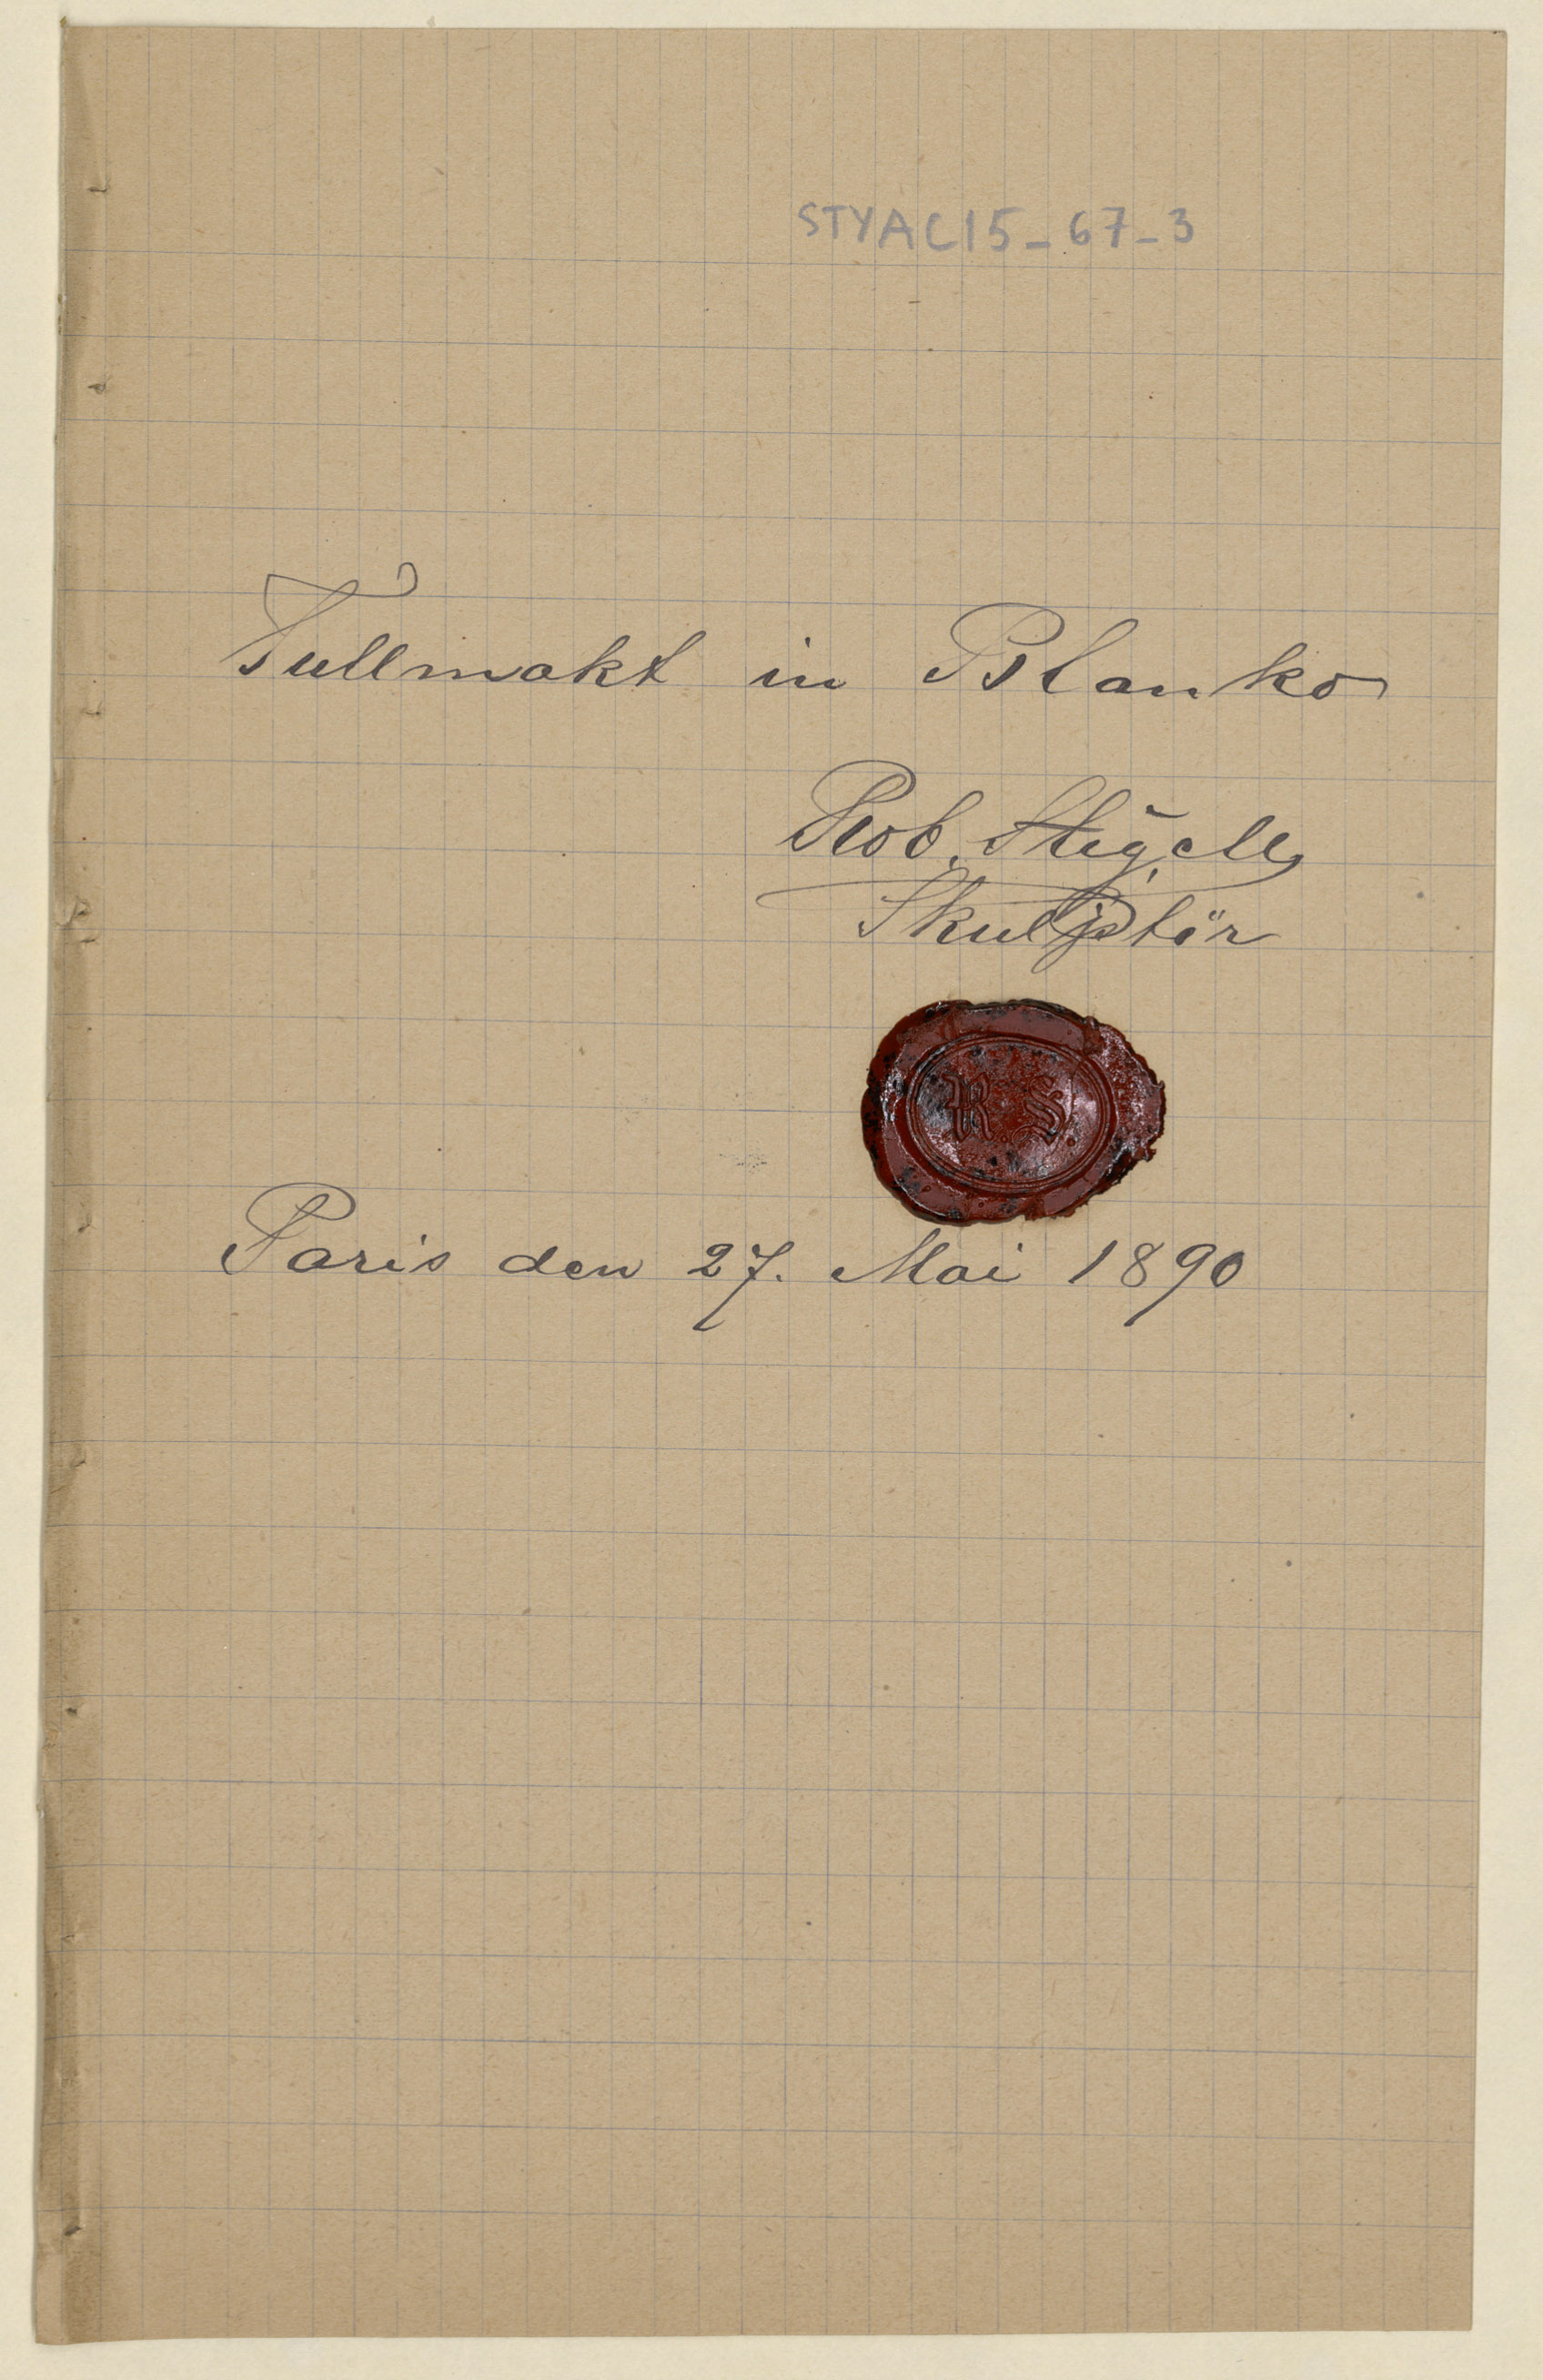 STYAC15_67_3
Fullmakt in Blanko
Rob. Stigell
Skulptör
R. S.
Paris den 27. Mai 1890